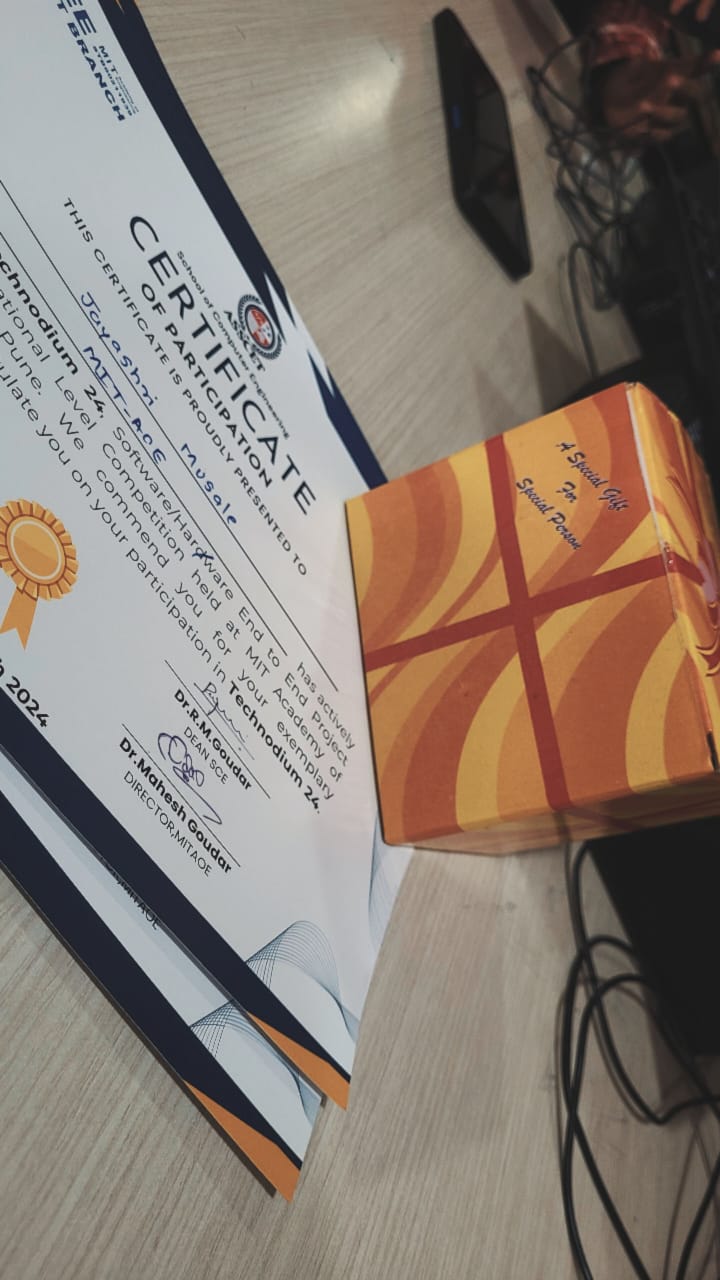 EE
MIT
T BRANCH
School of Computer Engineering
CERTIFICATE
OF PARTICIPATION
THIS CERTIFICATE IS PROUDLY PRESENTED TO
Jayashri Musale has actively
MIT-AOE
Technodium 24, Software/Hardware End to End Project
ational Level Competition held at MIT Academy of
Pune. We commend you for your exemplary
ulate you on your participation in Technodium 24.
2024
Dr.R.M.Goudar
DEAN SCE
Dr.Mahesh Goudar
DIRECTOR,MITAOE
A Special Gift
For
Special Person